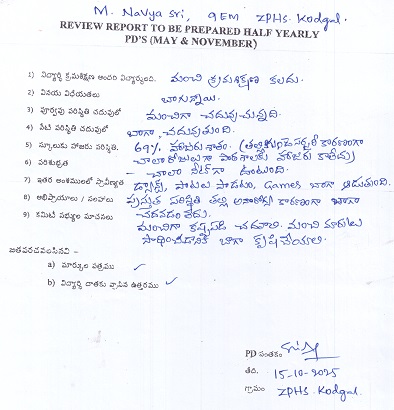 M. Navya Sri, 9EM ZPHS- Kodgal.
REVIEW REPORT TO BE PREPARED HALF YEARLY
PD'S (MAY & NOVEMBER)
1) విద్యార్థి క్రమశిక్షణ అందరి విద్యార్థులది. మంచి క్రమశిక్షణ కలదు.
2) వినయ విధేయతలు బాగున్నాయి.
3) పూర్వపు పరిస్థితి చదువులో మంచిగా చదువుచున్నది.
4) నేటి పరిస్థితి చదువులో బాగా చదువుతుంది.
5) స్కూలుకు హాజరు పరిస్థితి. 69% హాజరు శాతం. (తల్లి కారణంగా
చాలా రోజులుగా పాఠశాలకు హాజరు కాలేదు)
6) పరిశుభ్రత - చాలా నీట్‌గా ఉంటుంది.
7) ఇతర అంశములలో ప్రావీణ్యత డ్యాన్స్, పాటలు పాడటం, Games బాగా ఆడుతుంది.
8) అభిప్రాయాలు / సలహాలు ప్రస్తుత పరిస్థితి తల్లి అనారోగ్య కారణంగా బాగా
చదవడం లేదు.
9) కమిటీ సభ్యుల సూచనలు మంచిగా కష్టపడి చదవాలి. మంచి మార్కులు
సాధించడానికి బాగా కృషి చేయాలి.
జతపరచవలసినవి -
a) మార్కుల పత్రము ✓
b) విద్యార్థి దాతకు వ్రాసిన ఉత్తరము ✓
PD సంతకం
తేది. 15-10-2025
గ్రామం ZPHS- Kodgal.